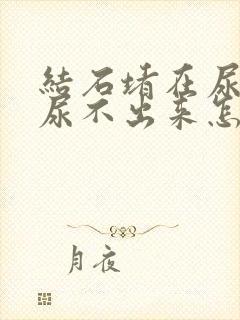 结石堵在尿
尿不出来怎
月夜